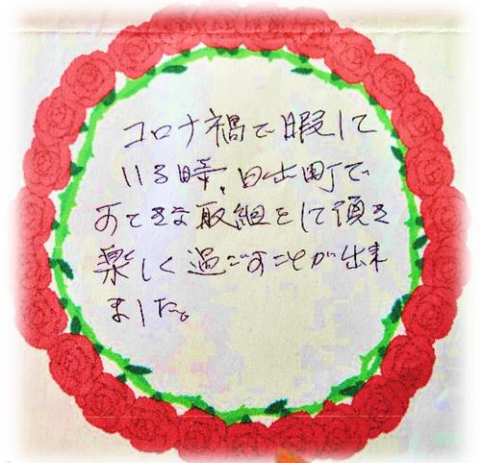 コロナ禍で暇して
いる時、日出町で
すてきな取組をして頂き
楽しく過ごすことが出来
ました。